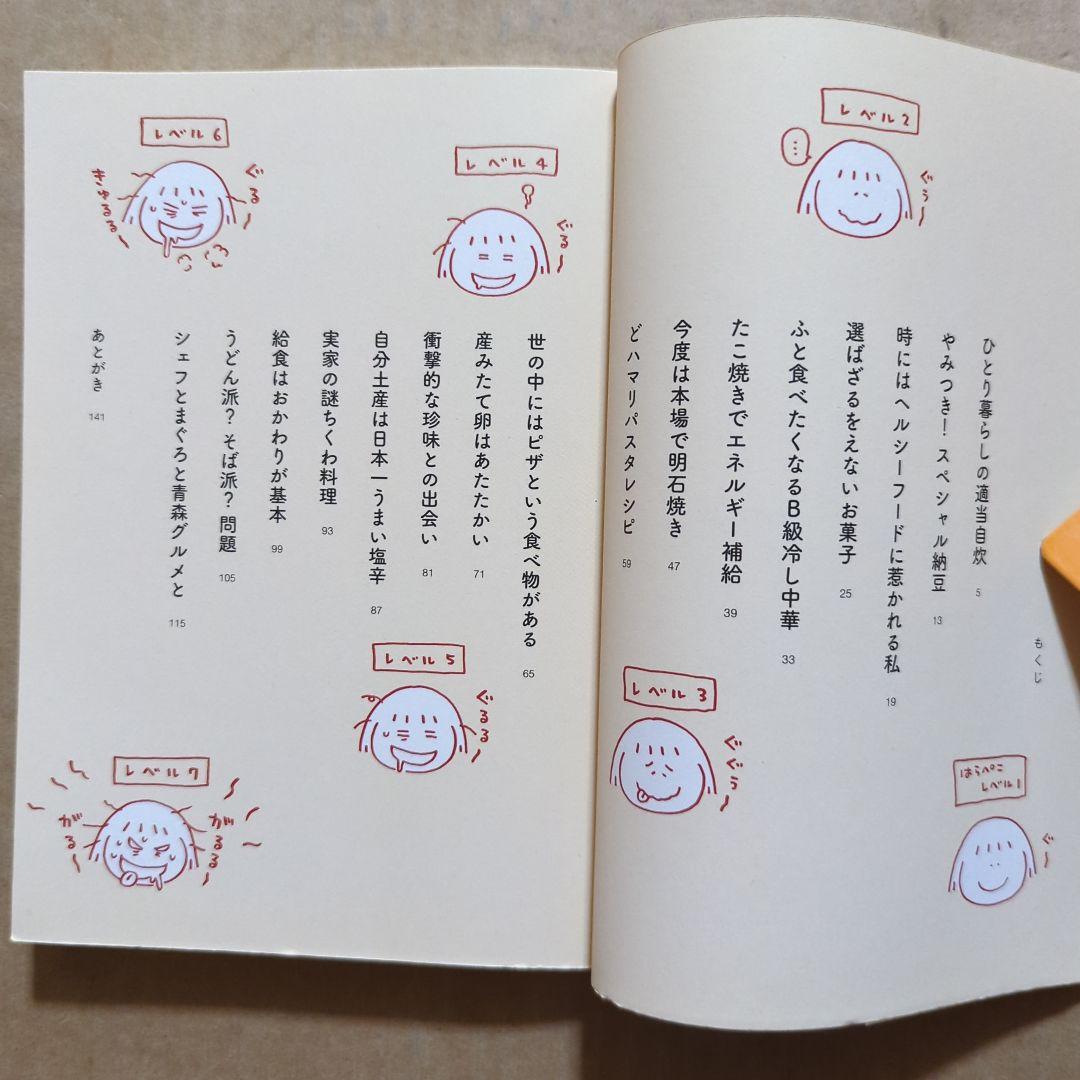 もくじ
ひとり暮らしの適当自炊 5
やみつき！スペシャル納豆 13
時にはヘルシーフードに惹かれる私 19
選ばざるをえないお菓子 25
ふと食べたくなるB級冷し中華 33
たこ焼きでエネルギー補給 39
今度は本場で明石焼き 47
どハマリパスタレシピ 59
はらぺこ
レベル1
ぐ〜
レベル2
…
ぐぅ〜
レベル3
ぐぐぅ〜
世の中にはピザという食べ物がある 65
産みたて卵はあたたかい 71
衝撃的な珍味との出会い 81
自分土産は日本一うまい塩辛 87
実家の謎ちくわ料理 93
給食はおかわりが基本 99
うどん派？そば派？問題 105
シェフとまぐろと青森グルメと 115
あとがき 141
レベル4
ぐる〜
レベル5
ぐるる〜
レベル6
ぐる〜
きゅるるる〜
レベル7
がるる〜
がる〜